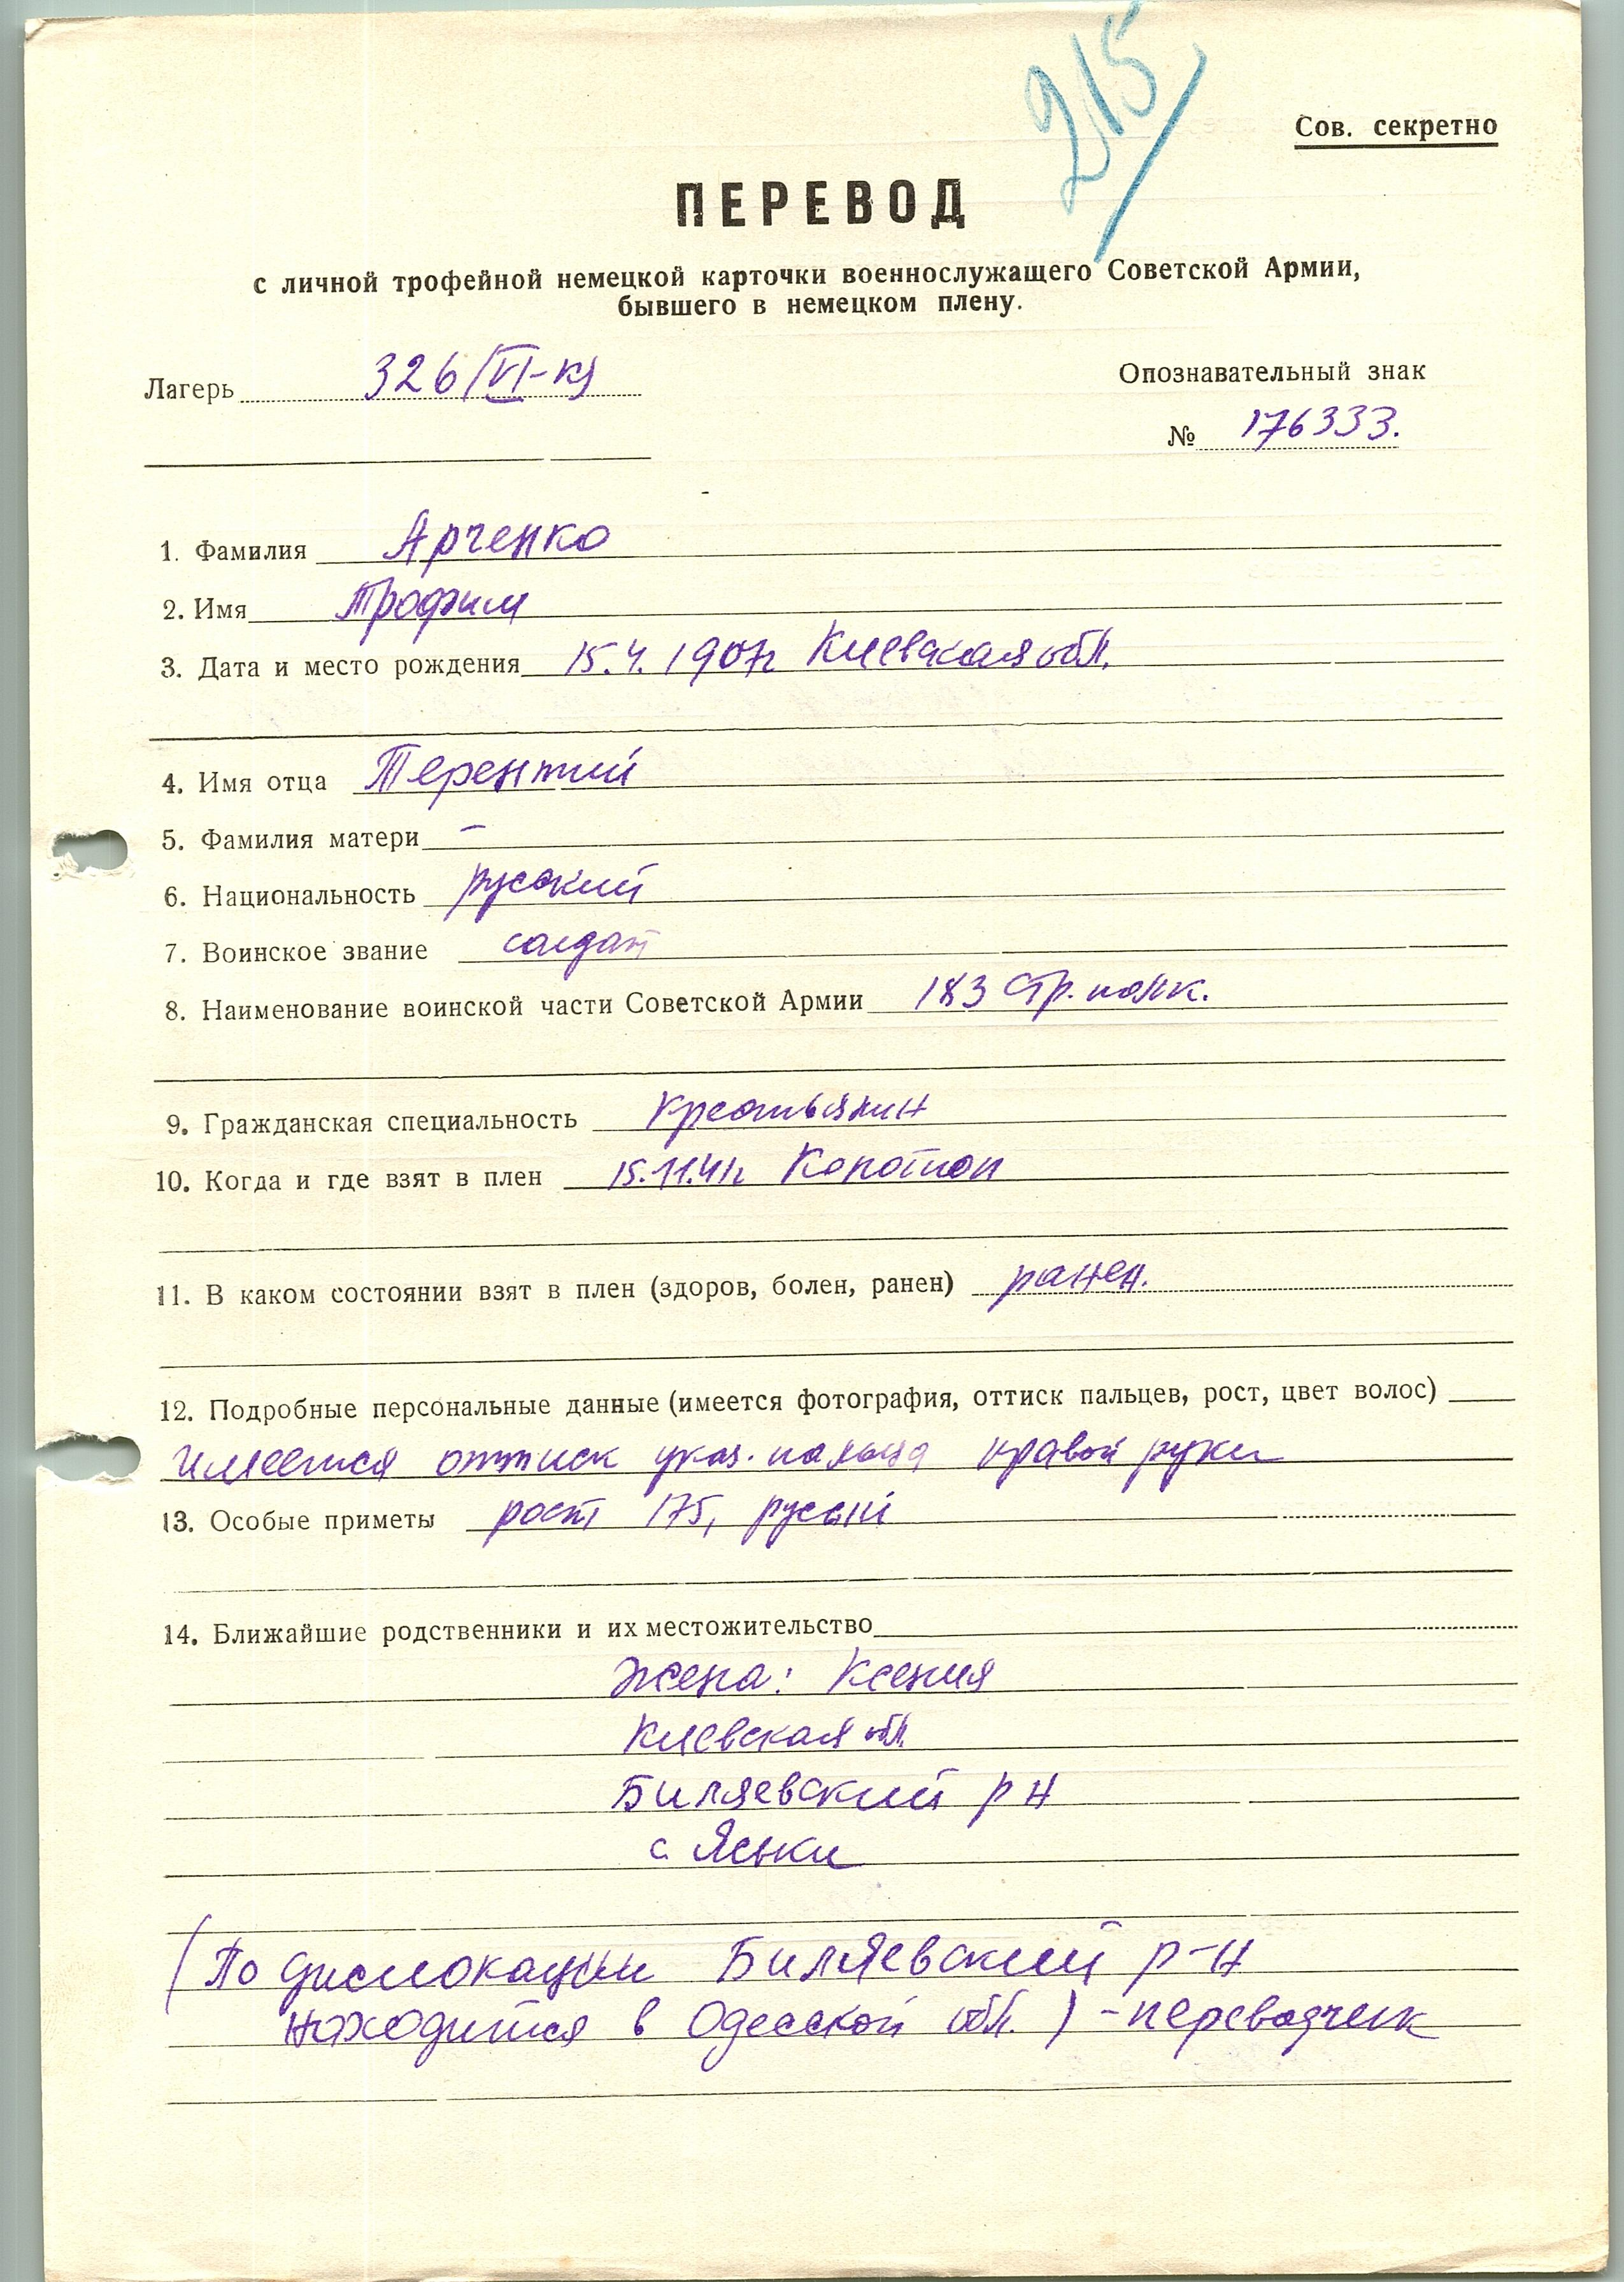 215
Сов. секретно
ПЕРЕВОД
с личной трофейной немецкой карточки военнослужащего Советской Армии,
бывшего в немецком плену.
Лагерь 326/VI-к)
Опознавательный знак
№ 176333.
1. Фамилия Арченко
2. Имя Трофим
3. Дата и место рождения 15.4.1907г Киевская обл.
4. Имя отца Терентий
5. Фамилия матери –
6. Национальность русский
7. Воинское звание солдат
8. Наименование воинской части Советской Армии 183 Стр. полк.
9. Гражданская специальность Крестьянин
10. Когда и где взят в плен 15.11.41г
11. В каком состоянии взят в плен (здоров, болен, ранен) ранен.
12. Подробные персональные данные (имеется фотография, оттиск пальцев, рост, цвет волос)
имеется оттиск указ. пальца правой руки
13. Особые приметы рост 175, русый
14. Ближайшие родственники и их местожительство
Жена: Ксения
Киевская обл.
Биляевский р н
с. Яськи
(По дислокации Биляевский р-н
находится в Одесской обл.) - переводчик